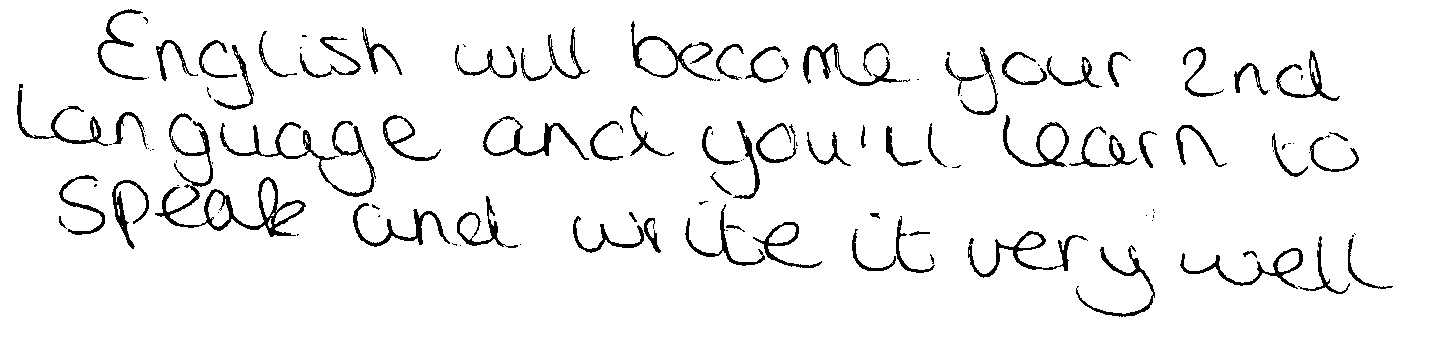 English will become your 2nd
language and you'll learn to
speak and write it very well